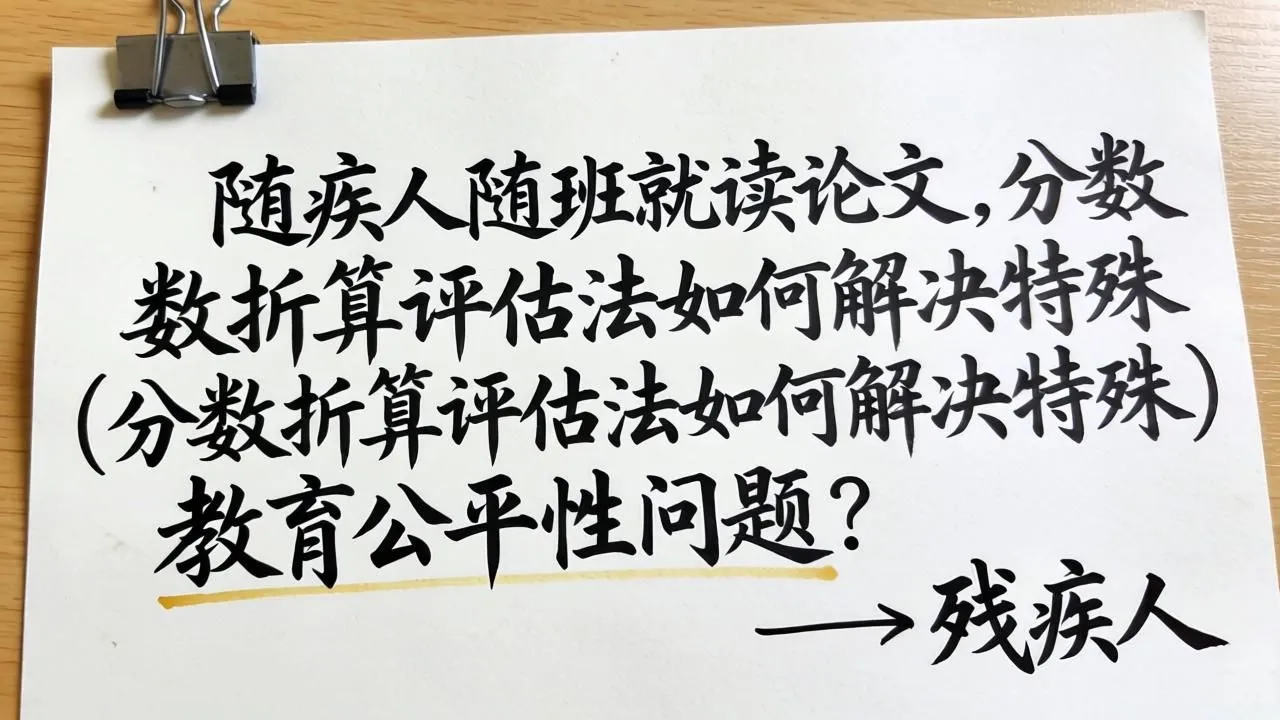 随疾人随班就读论文,分数
数折算评估法如何解决特殊
(分数折算评估法如何解决特殊)
教育公平性问题?
→残疾人